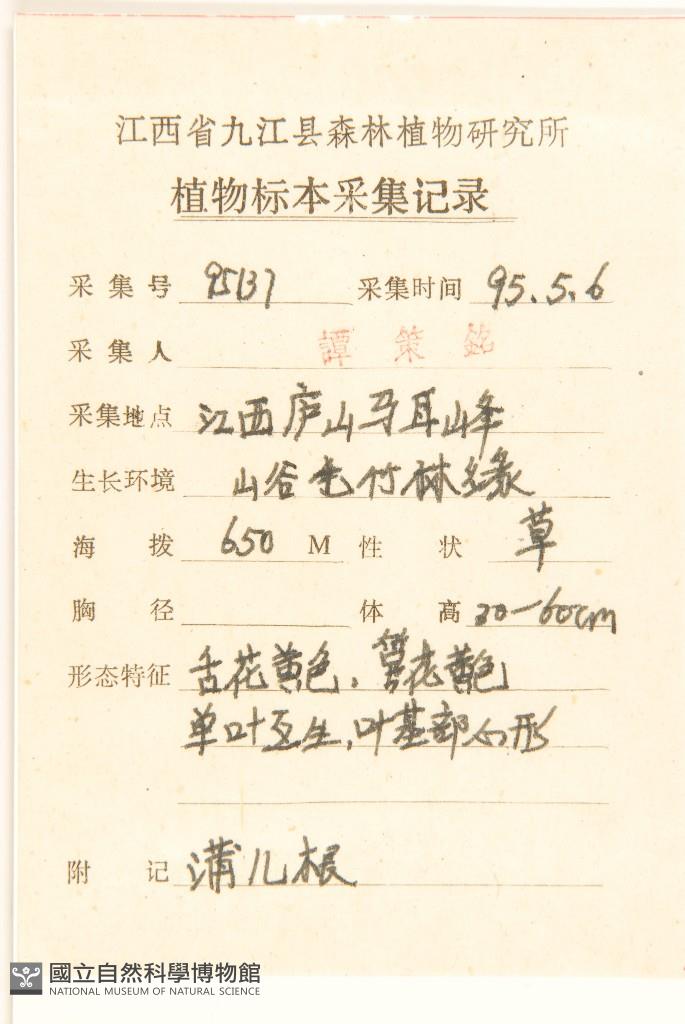 江西省九江县森林植物研究所
植物标本采集记录
采集号 95137 采集时间 95.5.6
采集人 譚策銘
采集地点 江西庐山马耳峰
生长环境 山谷毛竹林缘
海拨 650 M 性状 草
胸径 体高 20—60cm
形态特征 舌花黄色, 筒花黄色
单叶互生, 叶基部心形
附记 蒲儿根
國立自然科學博物館
NATIONAL MUSEUM OF NATURAL SCIENCE